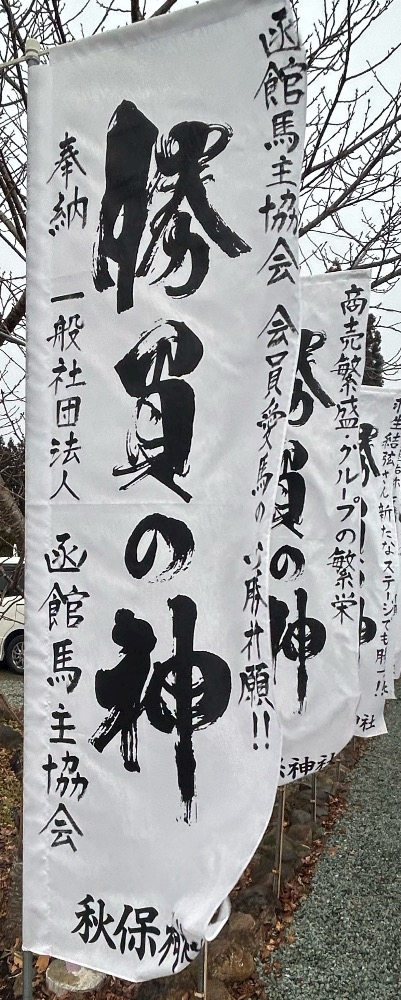 函館馬主協会 会員愛馬の必勝祈願!!
勝負の神
奉納 一般社団法人 函館馬主協会
秋保神社
商売繁盛・グループの繁栄
の神
神社
結弦さん新たなステージでも
神社